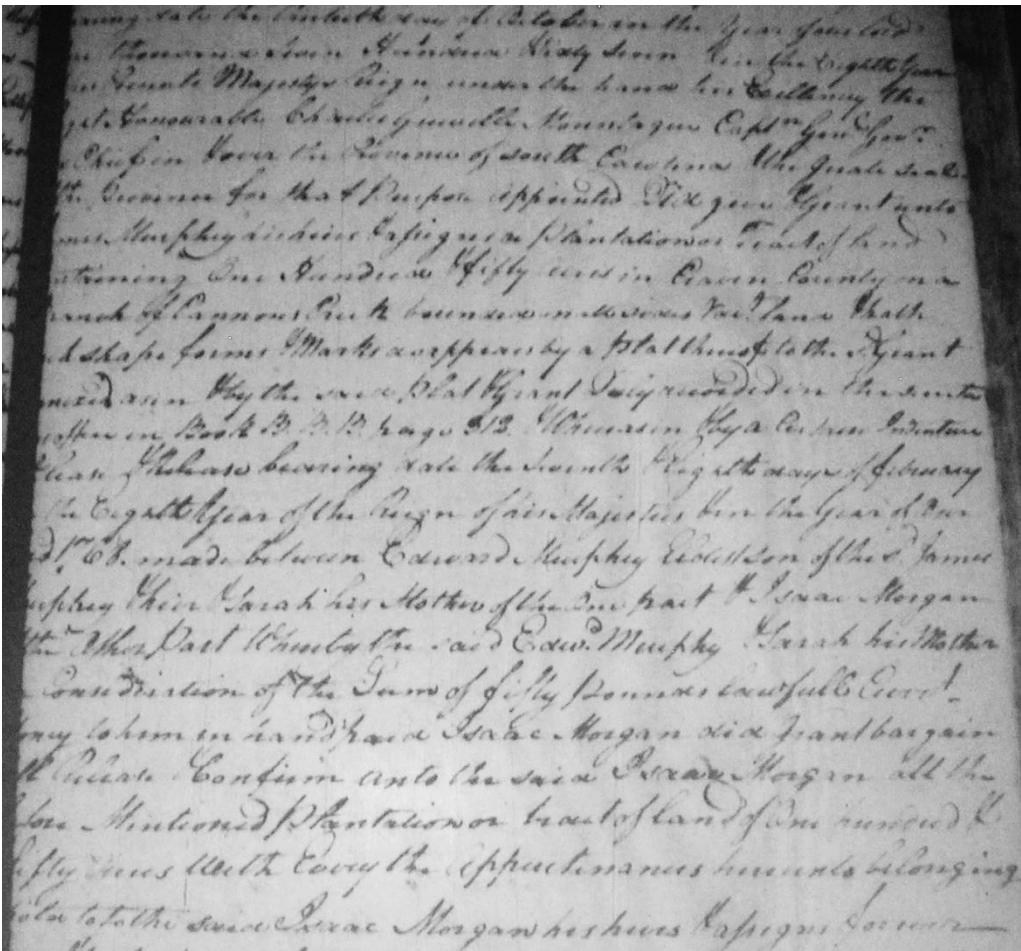 bearing date the twentieth day of October in the Year of our Lord
thousand Seven Hundred Sixty Seven & in the Eighth Year
Majestys Reign under the hand his Excellency the
Honourable Charles Greville Mountague Capt.n Gen.l Gov.r
Chief in & over the Province of South Carolina the Great Seal
Province for that Purpose appointed Did give & Grant unto
Murphey his heirs & assigns a Plantation or Tract of land
One Hundred & fifty acres in Craven County on a
of Cannons Creek bounded on all sides Vac.t land & hath
shape forms & Marks as appears by a Plat thereof to the s.d Grant
as in & by the said Plat & Grant Duly recorded in the
in Book B. B. B. page 312. & Whereas in & by a Certain Indenture
Lease & Release bearing date the Seventh & Eighth days of february
the Eighth Year of the Reign of his Majesties & in the Year of Our
1768. made between Edward Murphey Eldest son of the s.d James
& heir & Sarah his Mother of the One part & Isaac Morgan
Other Part Whereby the said Edw.d Murphy & Sarah his Mother
Consideration of the Sum of fifty Pounds lawfull Curr.t
to him in hand paid Isaac Morgan did grant bargain
Release & Confirm unto the said Isaac Morgan all the
Mentioned Plantation or tract of land of One hundred &
fifty acres With Every the appurtenances thereunto belonging
to the said Isaac Morgan his heirs & assigns forever